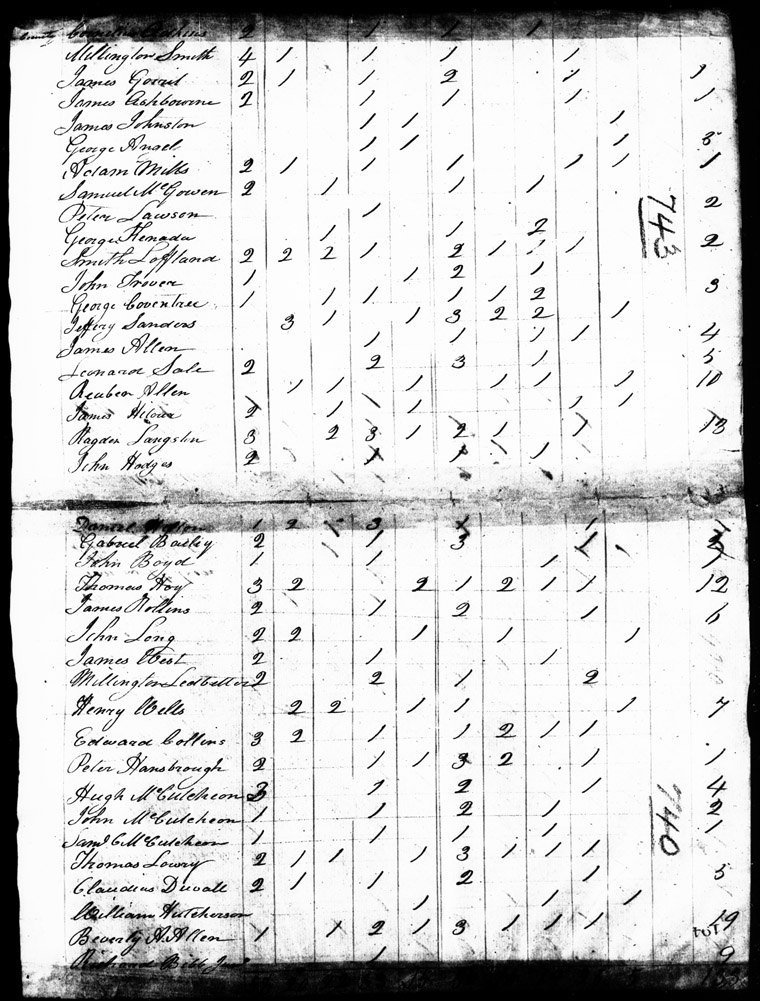 2 1 1 1
Millington Smith 4 1 1 1 1
James Gorrel 2 1 1 2 1 1
James Ashbourne 2 1 1 1 1
James Johnston 1 1 1
George Angel 1 1 1 3
Adam Mills 2 1 1 1 1 1 1
Samuel McGowen 2 1 1 1
Peter Lawson 1 2
George Kenada 1 1 2
Smith Loffland 2 2 2 1 2 1 1 1 2
John Trover 1 1 2 1
George Coventree 1 1 1 1 1 2 3
Jeffery Sanders 3 1 1 3 2 2 1
James Allen 1 1 1 1 4
Leonard Sale 2 2 3 1 5
Reuben Allen 1 1 1 1 1 1 10
James 2 1 1 1 1 1
Ragden Langston 3 2 3 1 2 1 1 13
John Hodges 2 1 1 1 1
743
Daniel 1 2 1 3 1 1
Gabriel Bailey 2 1 3 1
John Boyd 1 1 1 1
Thomas Hoy 3 2 2 1 2 1 1 12
James Rollins 2 1 2 1 6
John Long 2 2 1 1 1
James West 2 1 1
Millington Ledbetter 2 2 1 2
Henry Wells 2 2 1 1 1 7
Edward Collins 3 2 1 1 2 1 1
Peter Hansbrough 2 1 1 3 2 1 1
Hugh McCutcheon 3 1 2 1 4
John McCutcheon 1 1 2 1 2
Saml C McCutcheon 1 1 1 1 1
Thomas Lowry 2 1 1 1 3 1 1 1
Claudius Duvall 2 1 1 2 1 5
William Hutcherson 1 1 1
Beverly A. Allen 1 1 2 1 3 1 1 1 19
TOT
Richard Bibb Junr 1 9
740